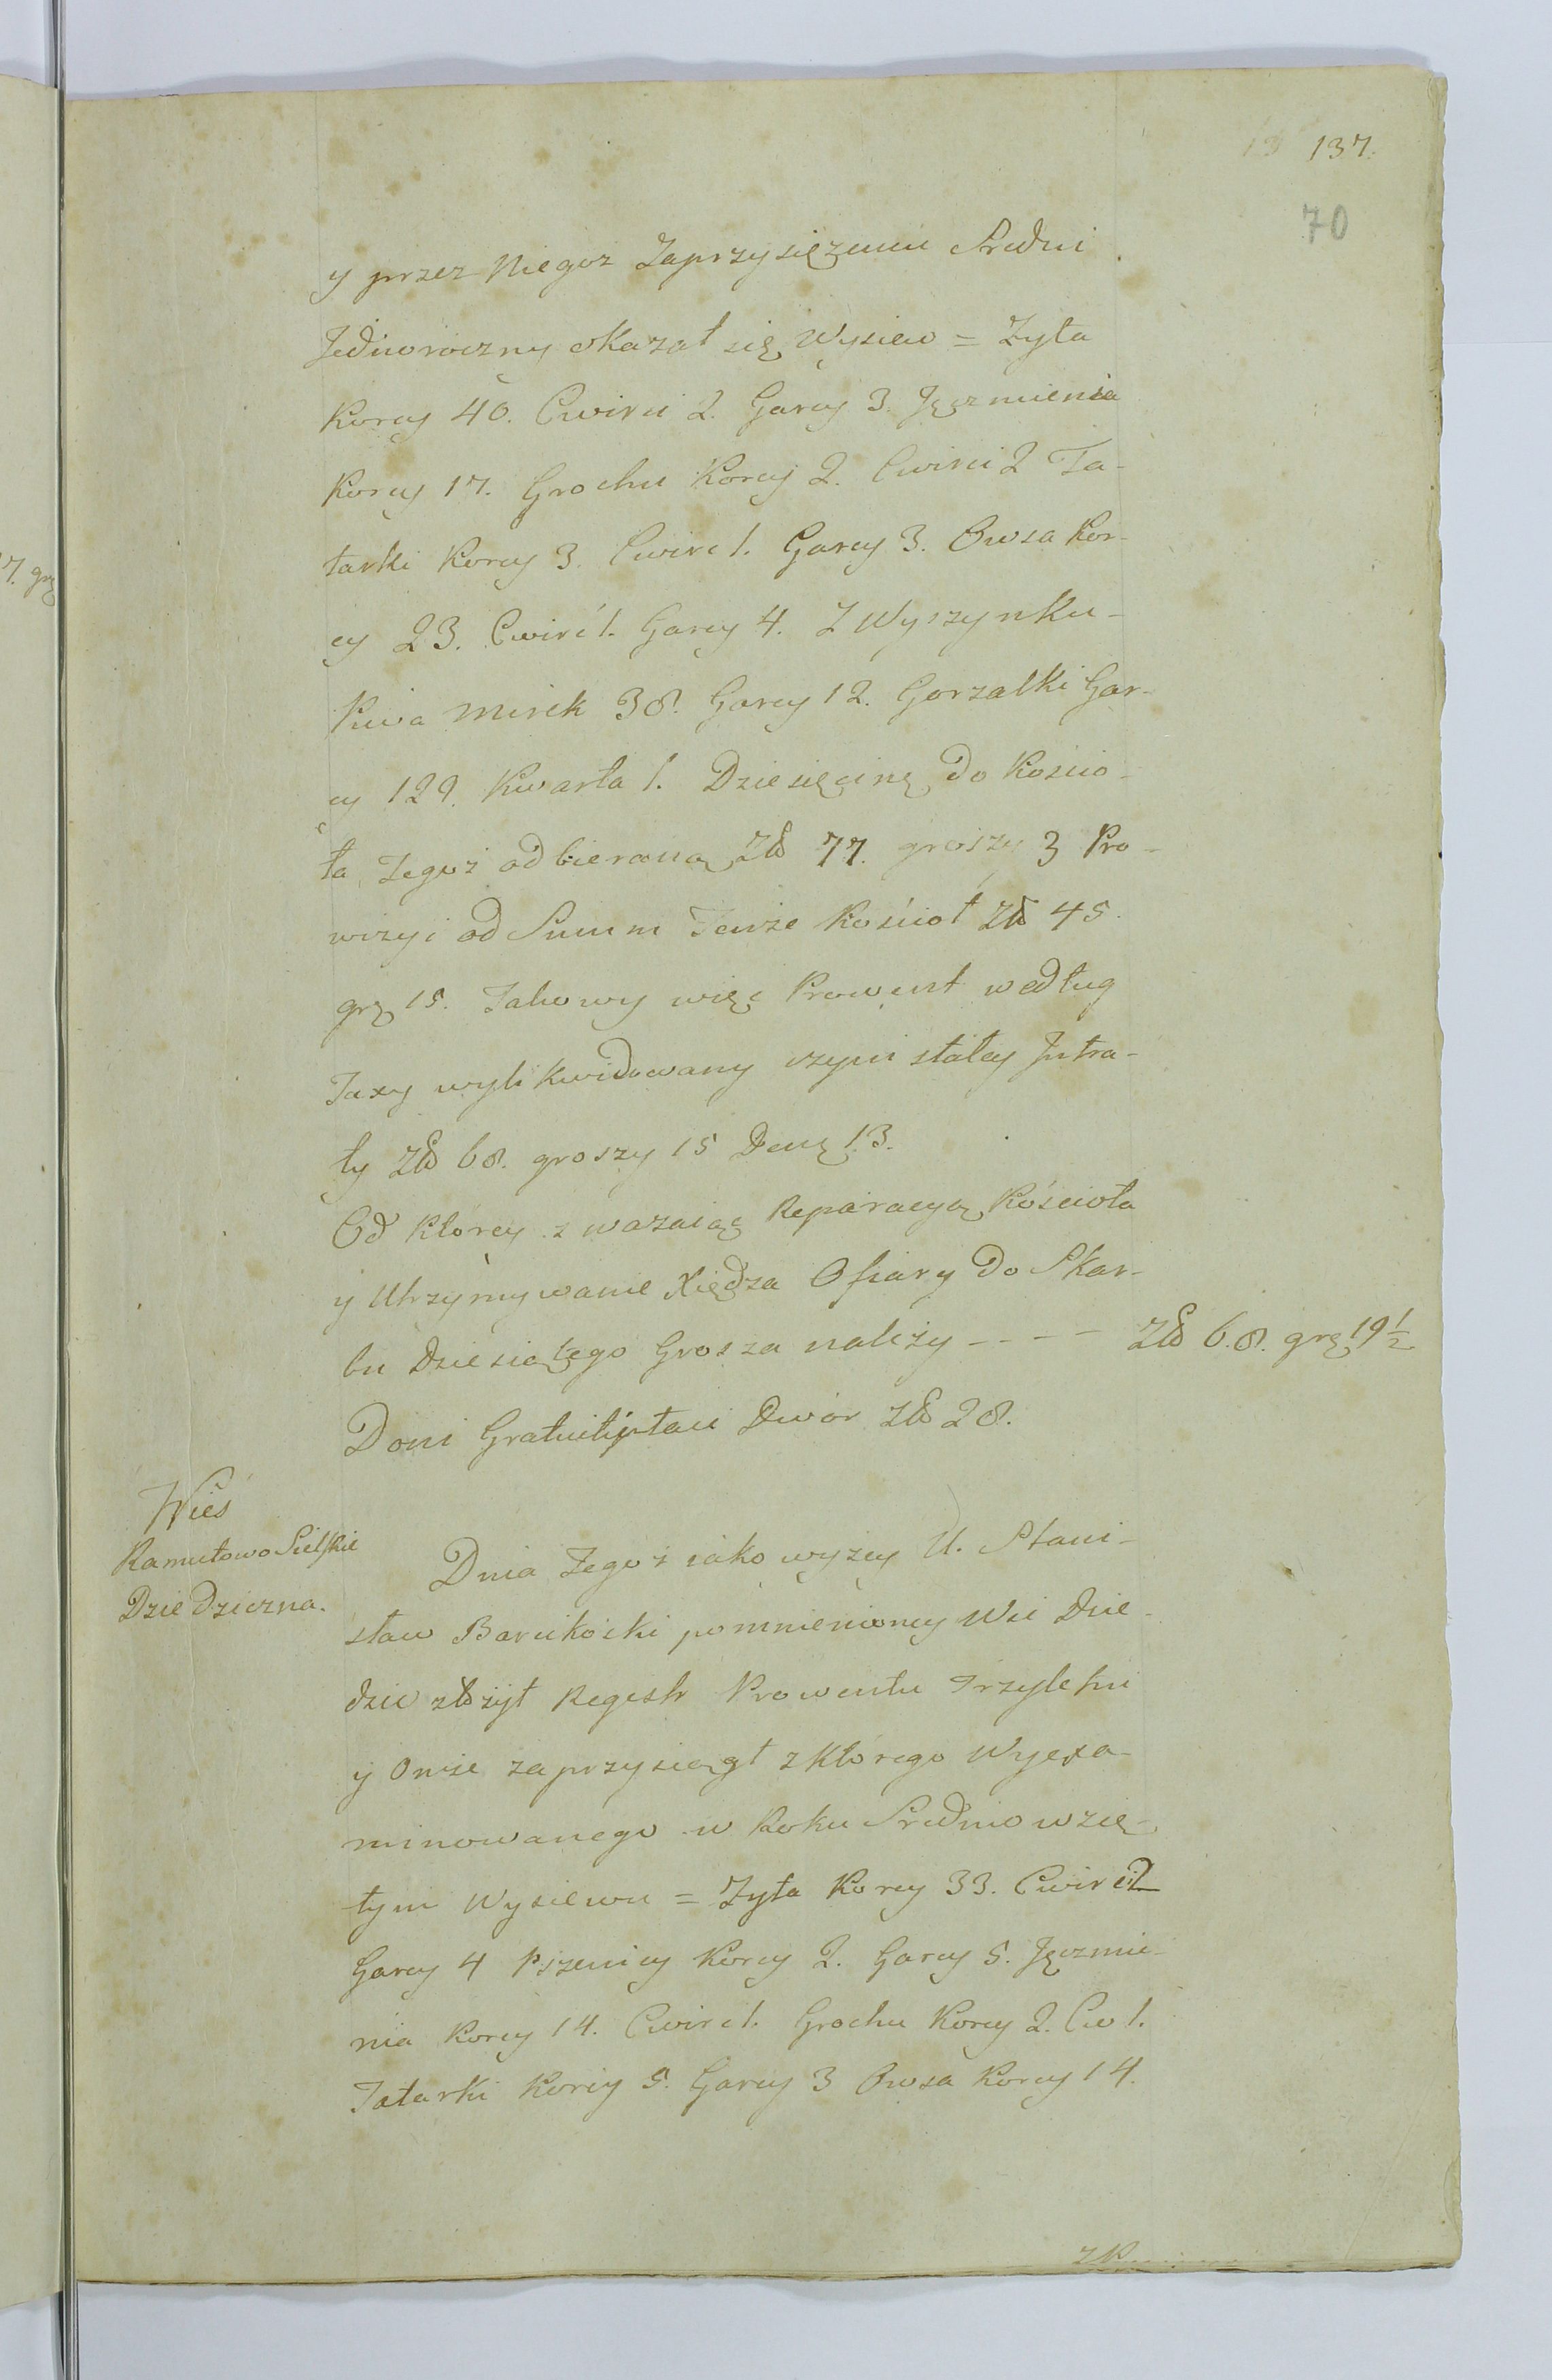 137.
70
y przez Niegoz Zaprzysięzeniu Sredni
Jednoroczny okazał się Wysiew = Zyta
Korcy 40. Cwirci 2. Garcy 3. Jęczmienia
Korcy 17. Grochu Korcy 2. Cwirci 2 Ta-
tarki Korcy 3. Cwirc 1. Garcy 3. Owsa Kor-
cy 23. Cwirć 1. Garcy 4. Z Wyszynku-
Piwa Mirek 38. Garcy 12. Gorzałki Gar-
cy 129. Kwarta 1. Dziesięcinę do Kościo-
ła Tegoż odbieraną Zł 77. groszy 3 Pro-
wizyi od Summ Tenże Kościoł Zł 45.
grz 15. Takowy więc Prowent według
Taxy wylikwidowany czyni stałey Jntra-
ty Zł 68. groszy 15 Den 13.
Od Ktorey zwazaiąc Reparacyą Kościoła
y Utrzymywanie Xiędza Ofiary do Skar-
bu Dziesiątego Grosza należy - - - - Zł 6.8. grz 19 1/2
Doni Gratuiti płaci Dwór Zł 28.
Wieś
Ramutowo Sielskie
Dziedziczna.
Dnia Tegoż iako wyzey U. Stani-
sław Barcikoski pomnienioney Wsi Dzie-
dzic złożył Regestr Prowentu Trzyletni
y Onże zaprzysiągł z Ktorego Wyexa-
minowanego w Roku Srednio wzię-
tym Wysiewu = Zyta Korcy 33. Cwirci 2
Garcy 4 Pszenicy Korcy 2. Garcy 5. Jęczmie-
nia Korcy 14. Cwirc 1. Grochu Korcy 2. Cw 1.
Tatarki Korcy 5. Garcy 3 Owsa Korcy 14.